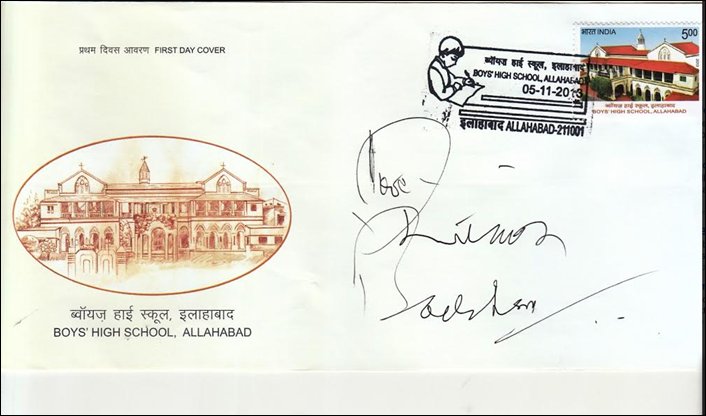 प्रथम दिवस आवरण FIRST DAY COVER
ब्वॉयज़ हाई स्कूल, इलाहाबाद
BOYS' HIGH SCHOOL, ALLAHABAD
05-11-2013
इलाहाबाद ALLAHABAD-211001
भारत INDIA
5.00
ब्वॉयज़ हाई स्कूल, इलाहाबाद
BOYS' HIGH SCHOOL, ALLAHABAD
ब्वॉयज़ हाई स्कूल, इलाहाबाद
BOYS' HIGH SCHOOL, ALLAHABAD